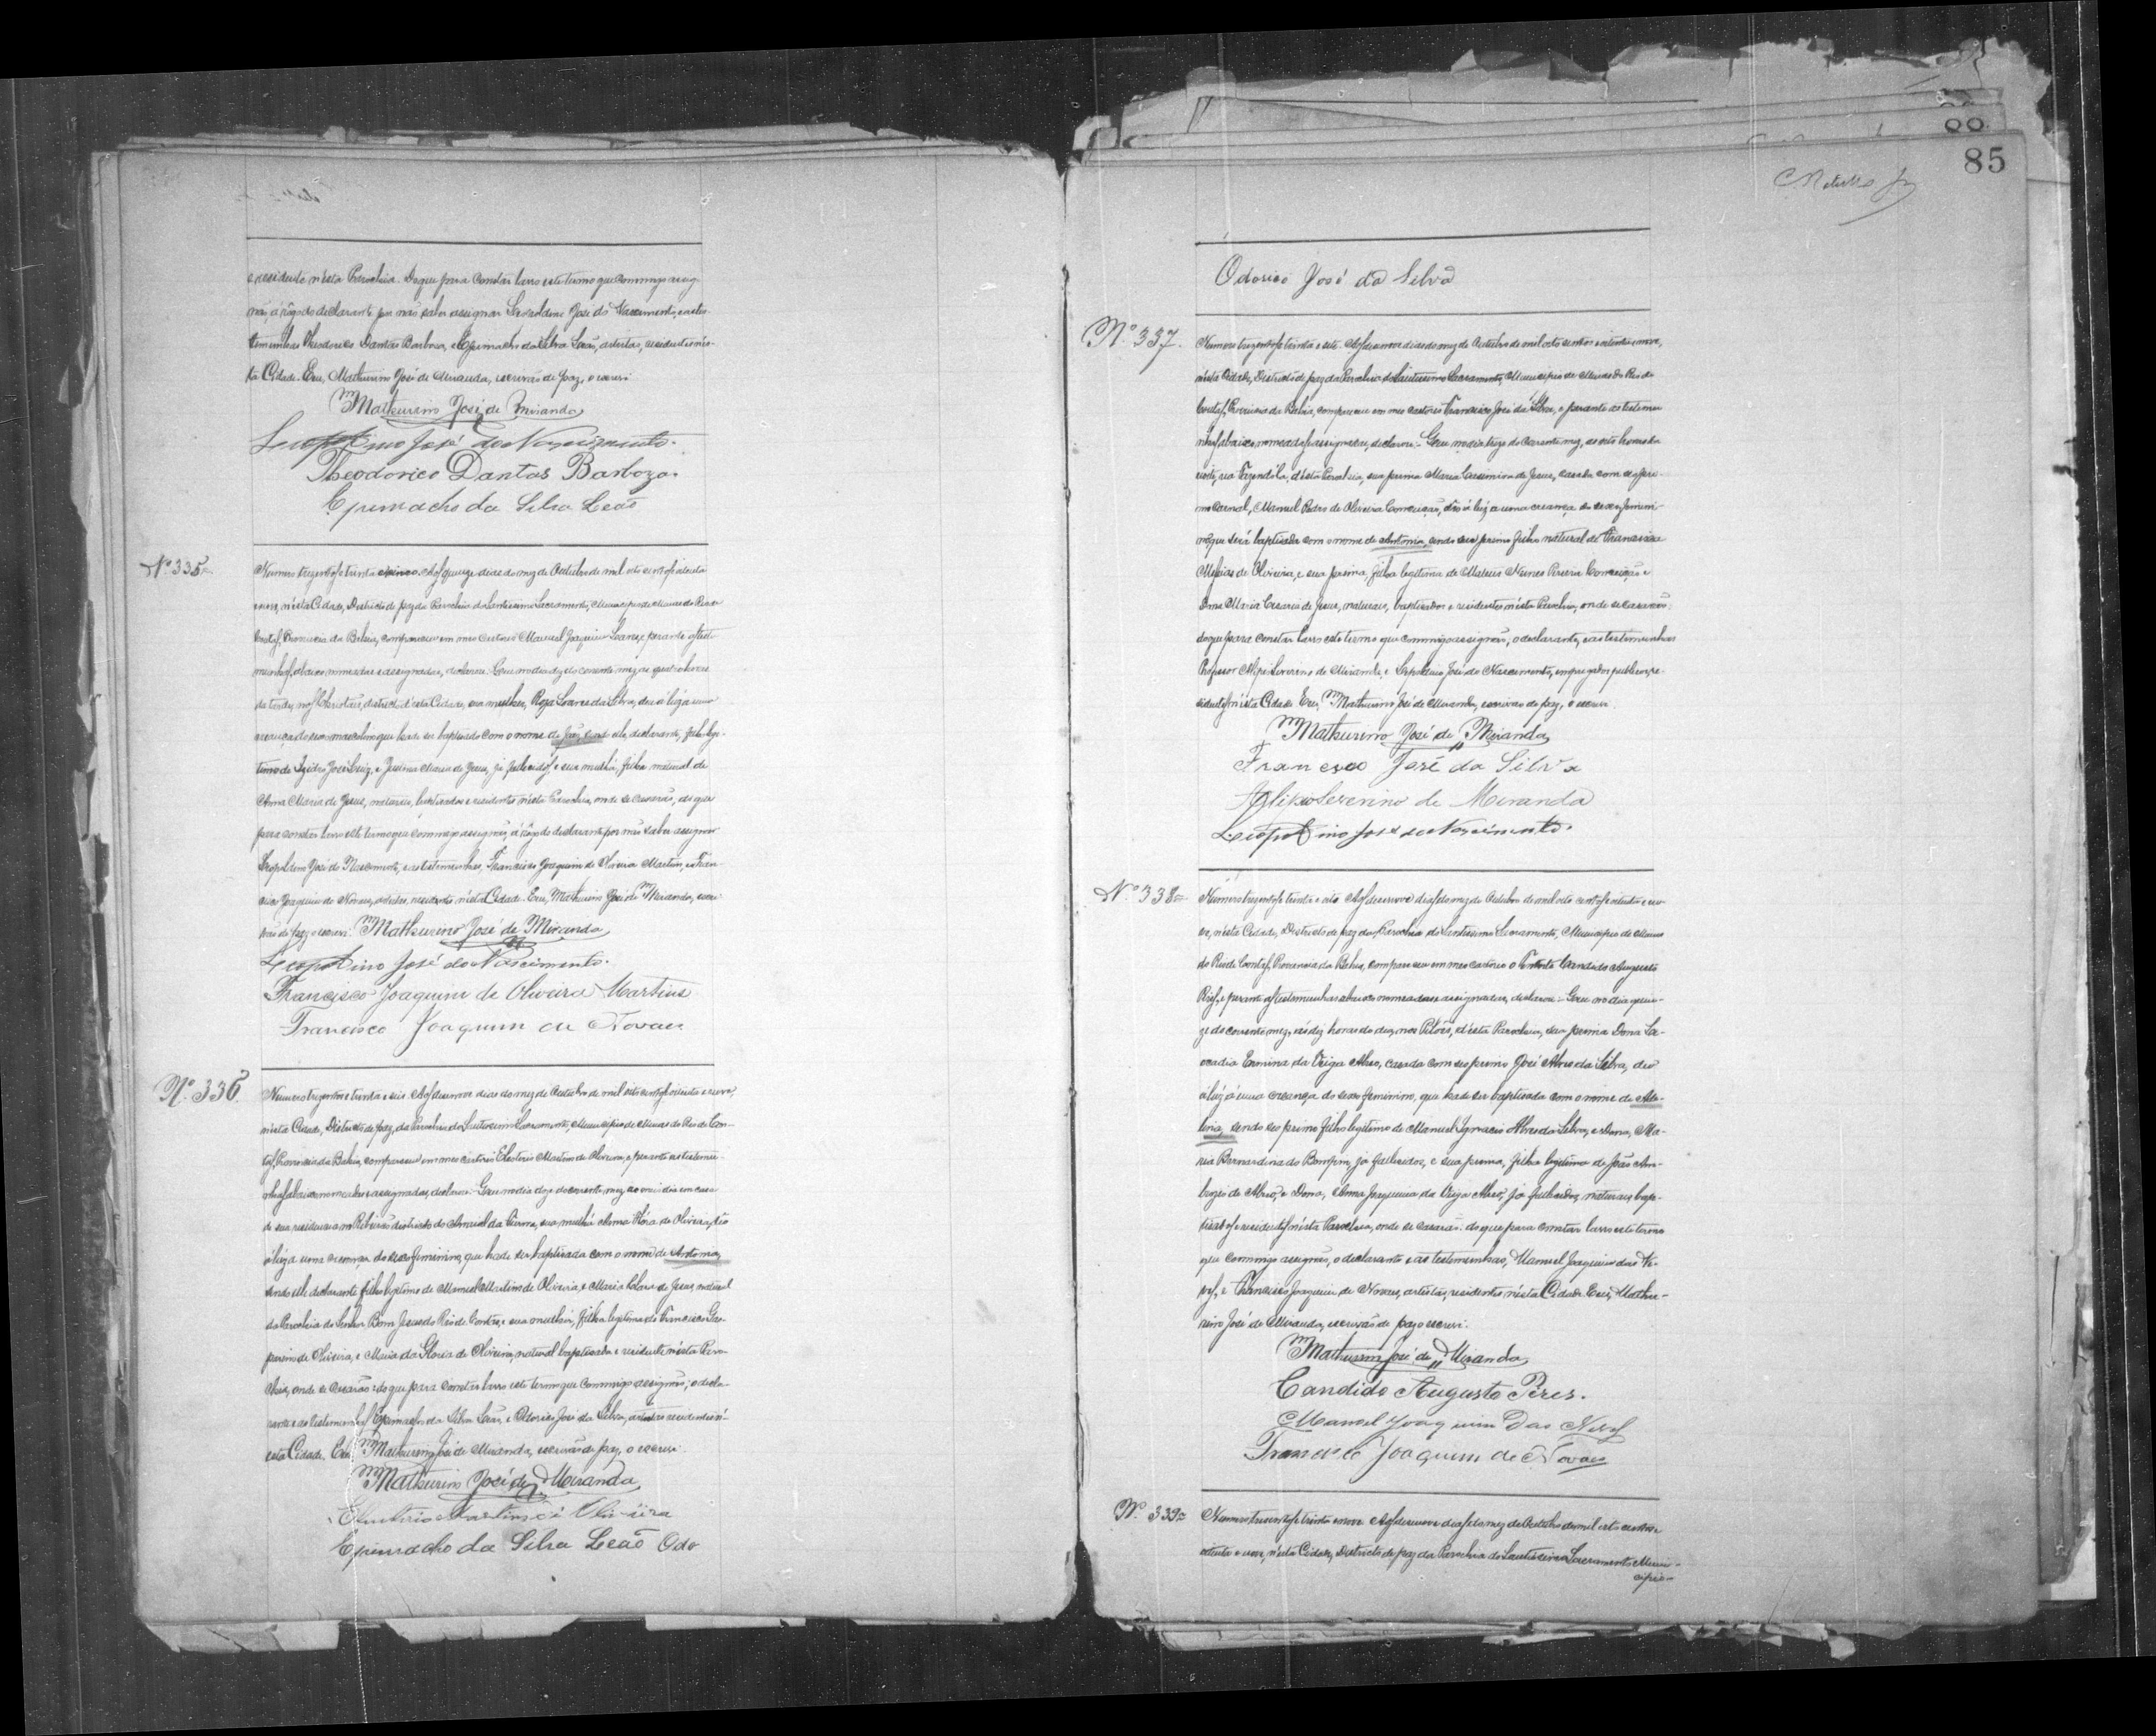 e residente nésta Parochia. Do que para constar lavro este termo que commigo assig-
não á rôgo do declarante por não saber assignar Leopoldino José do Nascimento, e as tes-
timunhas Theodorico Dantas Barboza, e Epimacho da Silva Leão, artistas, residentes nés-
ta Cidade. Eu, Mathurino José de Miranda, escrivão de paz, o escrevi
Mathurino José de Miranda
Leopoldino José do Nascimento.
Theodorico Dantas Barboza.
Epimacho da Silva Leão
Nº 335
Numero trezentos e trinta e cinco. Aos quinze dias do mez de Outubro de mil oito centos e oitenta
e nove, n'ésta Cidade, Districto de paz da Parochia do Santissimo Sacramento, Municipio de Minas do Rio de
Contas, Provincia da Bahia, compareceu em meo Cartorio Manuel Joaquim e perante as teste-
munhas abaixo nomeadas e assignadas, declarou: Que no dia dez do corrente mez, as quatro horas
da tarde, nos districto d'ésta Cidade, sua mulher, Roza Soares da Silva, deu á luz a uma
creança do sexo masculino que hade ser baptisado com o nome de sendo elle, declarante, filho legi-
timo de Izidro José Luiz, e Maria de Jesus, já fallecidos e sua mulhér, filha natural de
Anna Maria de Jesus, naturaes, baptisados e residentes nésta Parochia, onde se casarão, do que
para constar lavro este termo que commigo assignão, á rôgo do declarante por não saber assignar
Leopoldino José do Nascimento, e as testemunhas, Francisco Joaquim de Oliveira Martins, e Fran-
cisco Joaquim de Novaes, artistas, residentes nésta Cidade. Eu, Mathurino José de Miranda, escri-
vão de paz o escrevi. Mathurino José de Miranda
Leopoldino José do Nascimento.
Francisco Joaquim de Oliveira Martins
Francisco Joaquim de Novaes
Nº 336
Numero trezentos e trinta e seis. Aos desenove dias do mez de Outubro de mil oito centos e oitenta e nove,
nésta Cidade, Districto de paz, da Parochia do Santissimo Sacramento, Municipio de Minas do Rio de Con-
tas, Provincia da Bahia, compareceu em meo cartorio Eleuterio Martins de Oliveira, e perante as testemu-
nhas abaixo nomeadas e assignadas, declarou: Que no dia doze do corrente mez, ao meio dia em casa
de sua residencia no Ribeirão districto do Arraial da sua mulhér Anna de Oliveira, deo
á luz a uma creança do sexo feminino, que hade ser baptisada com o nome de Antonia,
sendo elle declarante filho legitimo de Manuel Martins de Oliveira, e Maria de Jesus, natural
da Parochia do Senhor Bom Jesus do Rio de Contas, e sua mulhér, filha legitima de Francisco
de Oliveira, e Maria da Gloria de Oliveira, natural baptisada e residente nésta Paro-
chia, onde se casarão: do que para constar lavro este termo que commigo assignão, o decla-
rante e as testemunhas Epimacho da Silva Leão, e Odorico José da Silva, artistas residentes n'
ésta Cidade. Eu Mathurino José de Miranda, escrivão de paz, o escrevi
Mathurino José de Miranda
Eleuterio Martins de Oliveira
Epimacho da Silva Leão Odo
85
Odorico José da Silva
Nº 337.
Numero trezentos e trinta e sete. Aos desenove dias do mez de Outubro de mil oito centos e oitenta e nove,
nésta Cidade, Districto de paz da Parochia do Santissimo Sacramento, Municipio de Minas do Rio de
Contas, Provincia da Bahia, compareceu em meo cartorio Francisco José da Silva, e perante as testemu-
nhas abaixo nomeadas e assignadas, declarou: Que no dia treze do corrente mez, as oito horas da
noite, na désta Parochia, sua prima Maria de Jesus, casada com seo pri-
mo carnal, Manuel Pedro de Oliveira Conceição, deo á luz a uma creança do sexo femini-
no que será baptisada com o nome de Antonia, sendo seo primo filho natural de Francisca
Messias de Oliveira, e sua prima, filha legitima de Matheus Nunes Pereira Conceição e
Dona Maria Cesaria de Jesus, naturaes, baptisados e residentes nésta Parochia, onde se casarão:
do que para constar lavro este termo que commigo assignão, o declarante, e as testemunhas
Professor Severino de Miranda, e Leopoldino José do Nascimento, empregados publicos, re-
sidentes nésta Cidade. Eu, Mathurino José de Miranda, escrivão de paz, o escrevi.
Mathurino José de Miranda
Francisco José da Silva
Severino de Miranda
Leopoldino José do Nascimento.
Nº 338
Numero trezentos e trinta e oito. Aos desenove dias do mez de Outubro de mil oito centos e oitenta e no-
ve, nésta Cidade, Districto de paz da Parochia do Santissimo Sacramento, Municipio de Minas
do Rio de Contas, Provincia da Bahia, compareceu em meo cartorio o Candido Augusto
Pires, e perante as testemunhas abaixo nomeadas e assignadas, declarou: Que no dia quin-
ze do corrente mez, as dez horas do dia, nos Pilões, désta Parochia, sua prima Dona Leo-
cadia Ermina da Veiga Abreo, casada com seo primo José Abreo da Silva, deo
á luz a uma creança do sexo feminino, que hade ser baptisada com o nome de
sendo seo primo filho legitimo de Manuel Ignacio Abreo da Silva, e Dona, Ma-
ria Bernardina do Bomfim, já fallecidos, e sua prima, filha legitima de João Am-
brozio de Abreo, e Dona, Anna Joaquina da Veiga Abreo, já fallecidos, naturaes, bap-
tisados e residentes nésta Parochia, onde se casarão: do que para constar lavro este termo
que commigo assignão, o declarante e as testemunhas, Manuel Joaquim das Ne-
ves, e Francisco Joaquim de Novaes, artistas, residentes nésta Cidade. Eu, Mathu-
rino José de Miranda, escrivão de paz o escrevi.
Mathurino José de Miranda
Candido Augusto Pires.
Manoel Joaquim Das Neves
Francisco Joaquim de Novaes
Nº 339
Numero trezentos e trinta e nove Aos desenove dias do mez de Outubro de mil oito centos e
oitenta e nove, n'ésta Cidade, Districto de paz da Parochia do Santissimo Sacramento Muni-
cipio-